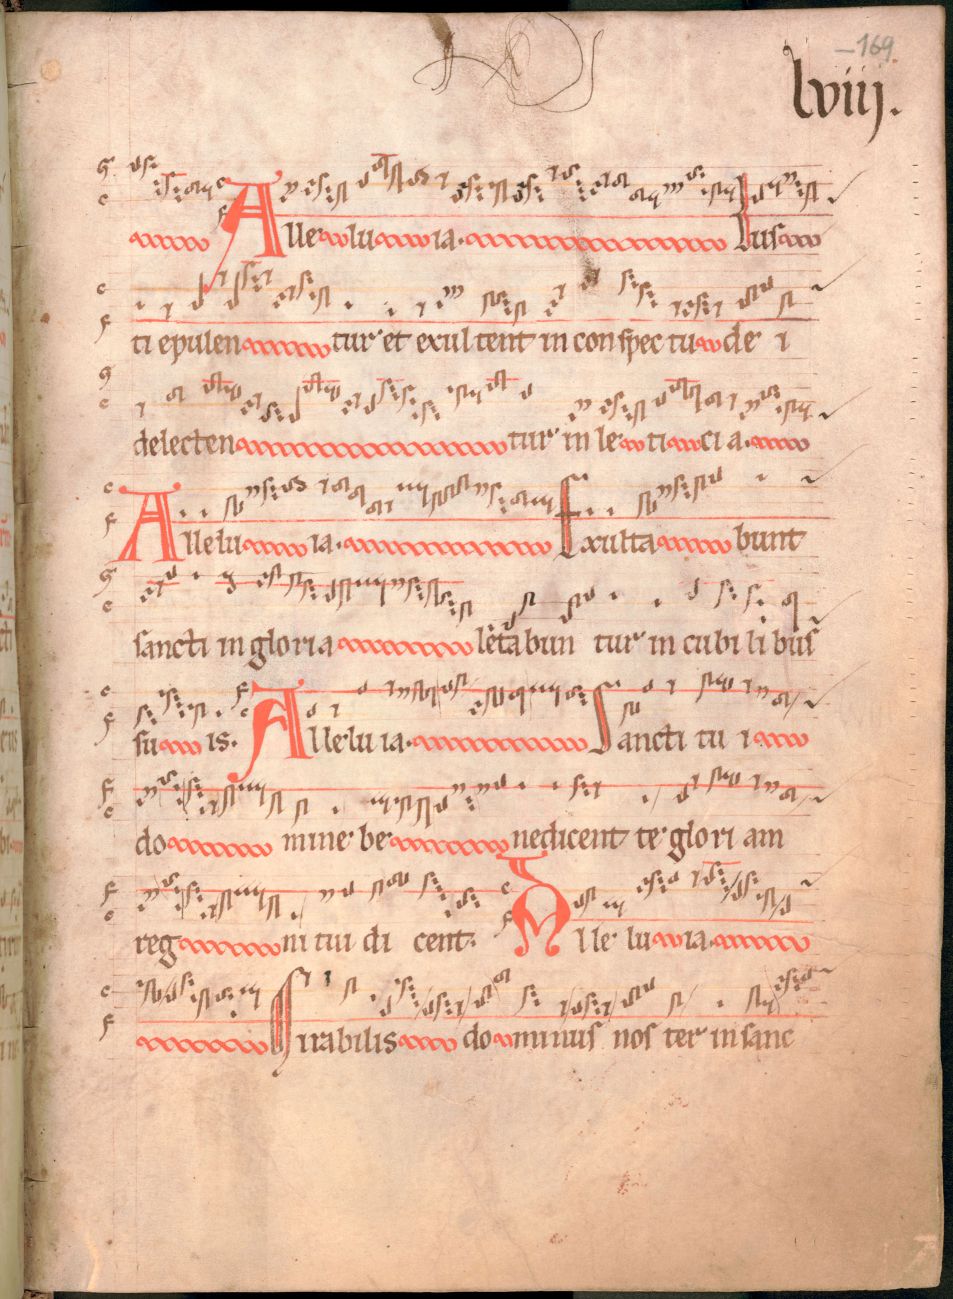 –169
lviij.
Alleluia. Iusti
ti epulentur et exultent in conspectu dei
delectentur in leticia.
Alleluia. Exultabunt
sancti in gloria letabuntur in cubilibus
suis. Alleluia. Sancti tui
domine benedicent te gloriam
regni tui dicent. Alleluia.
Mirabilis dominus noster in sanc